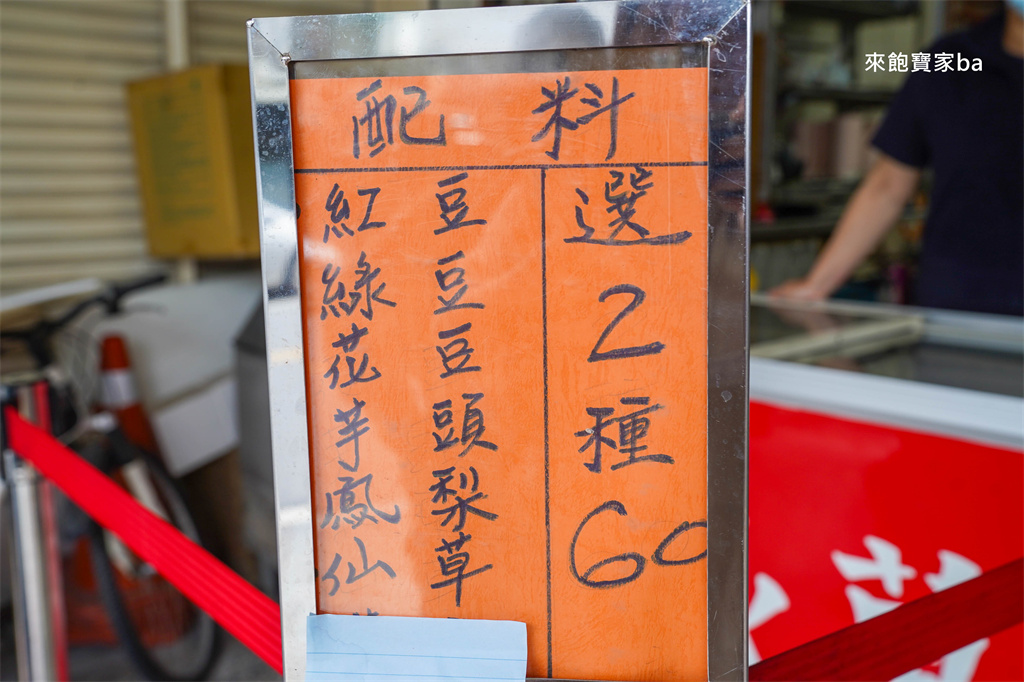 來飽寶家ba
配料
紅豆
綠豆
花豆
芋頭
鳳梨
仙草
選2種60